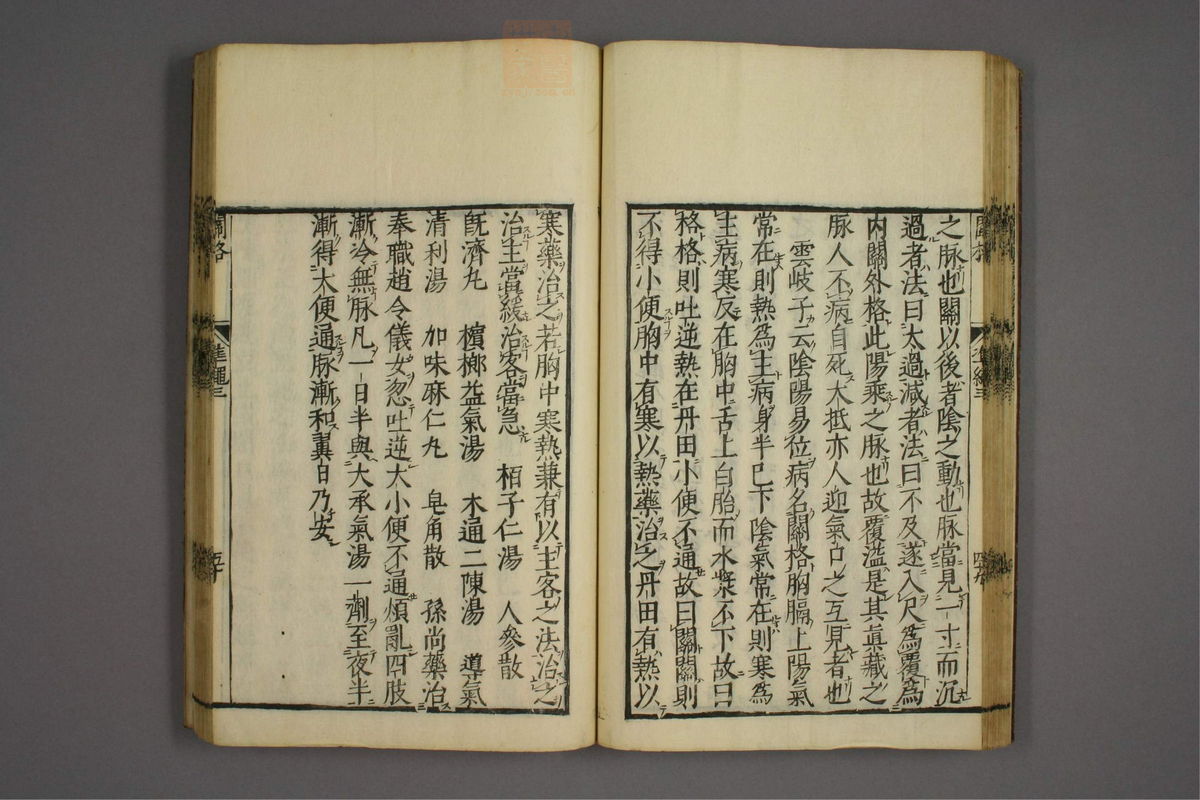 之脉也關以後者陰之動也脉當見一寸而沉
過者法曰太過減者法曰不及遂入尺爲覆爲
内關外格此陽乘之脉也故覆溢是其眞藏之
脉人不病自死大抵亦人迎氣口之互見者也
雲岐子云陰陽易位病名關格胸膈上陽氣
常在則熱爲主病身半已下陰氣常在則寒爲
主病寒反在胸中舌上白胎而水漿不下故曰
格格則吐逆熱在丹田小便不通故曰關關則
不得小便胸中有寒以熱藥治之丹田有熱以
寒藥治之若胸中寒熱兼有以主客之法治之
治主當緩治客當急 栢子仁湯 人參散
既濟丸 檳榔益氣湯 木通二陳湯 導氣
清利湯 加味麻仁丸 皂角散 孫尚藥治
奉職趙令儀女忽吐逆大小便不通煩亂四肢
漸冷無脉凡一日半與大承氣湯一劑至夜半
漸得大便通脉漸和翼日乃安
關格
準繩三